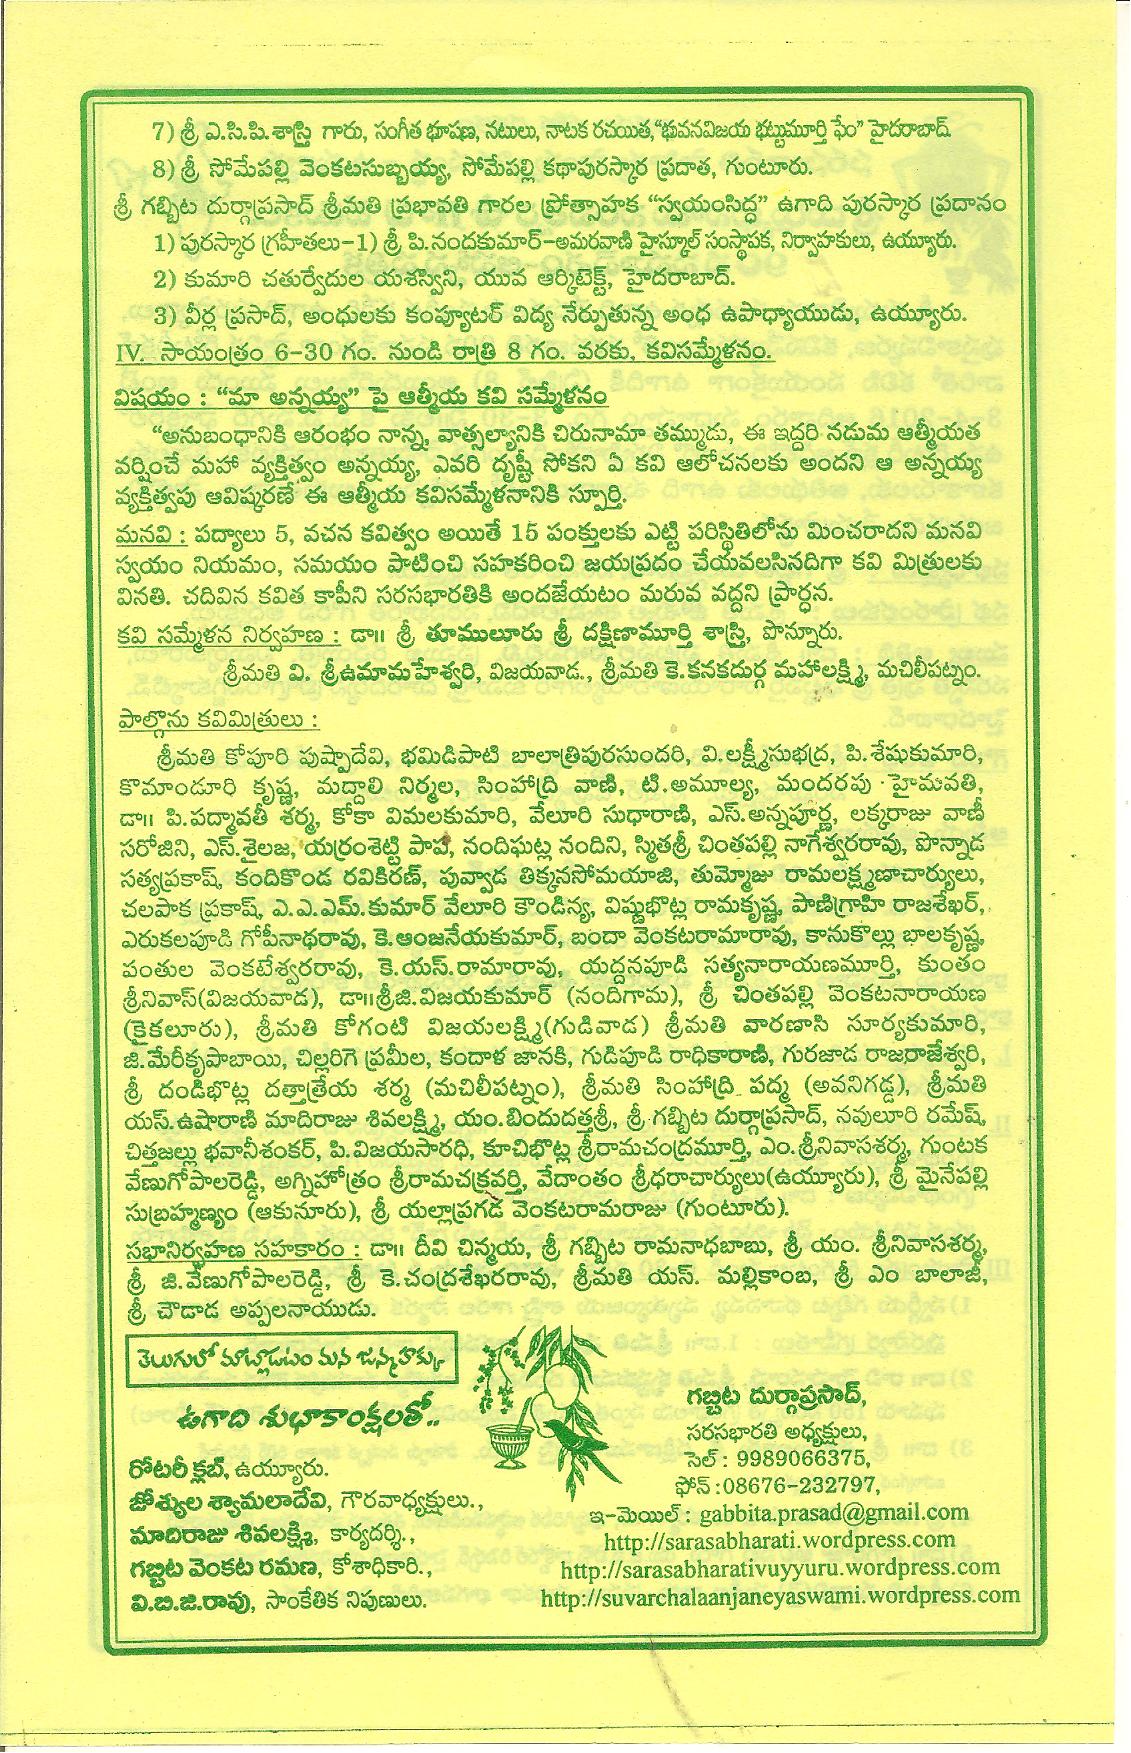 7) శ్రీ ఎ.సి.పి.శాస్త్రి గారు, సంగీత భూషణ, నటులు, నాటక రచయిత,"భువనవిజయ భట్టుమూర్తి ఫేం" హైదరాబాద్
8) శ్రీ సోమేపల్లి వెంకటసుబ్బయ్య, సోమేపల్లి కథాపురస్కార ప్రదాత, గుంటూరు.
శ్రీ గబ్బిట దుర్గాప్రసాద్ శ్రీమతి ప్రభావతి గారల ప్రోత్సాహక "స్వయంసిద్ధ" ఉగాది పురస్కార ప్రదానం
1) పురస్కార గ్రహీతలు-1) శ్రీ పి.నందకుమార్-అమరవాణి హైస్కూల్ సంస్థాపక, నిర్వాహకులు, ఉయ్యూరు.
2) కుమారి చతుర్వేదుల యశస్విని, యువ ఆర్కిటెక్ట్, హైదరాబాద్.
3) వీర్ల ప్రసాద్, అంధులకు కంప్యూటర్ విద్య నేర్పుతున్న అంధ ఉపాధ్యాయుడు, ఉయ్యూరు.
IV. సాయంత్రం 6-30 గం. నుండి రాత్రి 8 గం. వరకు, కవిసమ్మేళనం.
విషయం : "మా అన్నయ్య" పై ఆత్మీయ కవి సమ్మేళనం
"అనుబంధానికి ఆరంభం నాన్న, వాత్సల్యానికి చిరునామా తమ్ముడు, ఈ ఇద్దరి నడుమ ఆత్మీయత
వర్షించే మహా వ్యక్తిత్వం అన్నయ్య, ఎవరి దృష్టీ సోకని ఏ కవి ఆలోచనలకు అందని ఆ అన్నయ్య
వ్యక్తిత్వపు ఆవిష్కరణే ఈ ఆత్మీయ కవిసమ్మేళనానికి స్ఫూర్తి.
మనవి : పద్యాలు 5, వచన కవిత్వం అయితే 15 పంక్తులకు ఎట్టి పరిస్థితిలోను మించరాదని మనవి
స్వయం నియమం, సమయం పాటించి సహకరించి జయప్రదం చేయవలసినదిగా కవి మిత్రులకు
వినతి. చదివిన కవిత కాపీని సరసభారతికి అందజేయటం మరువ వద్దని ప్రార్ధన.
కవి సమ్మేళన నిర్వహణ : డా॥ శ్రీ తూములూరు శ్రీ దక్షిణామూర్తి శాస్త్రి, పొన్నూరు.
శ్రీమతి వి. శ్రీఉమామహేశ్వరి, విజయవాడ., శ్రీమతి కె.కనకదుర్గ మహాలక్ష్మి, మచిలీపట్నం.
పాల్గొను కవిమిత్రులు :
శ్రీమతి కోపూరి పుష్పాదేవి, భమిడిపాటి బాలాత్రిపురసుందరి, వి.లక్ష్మీసుభద్ర, పి.శేషుకుమారి,
కొమాండూరి కృష్ణ, మద్దాలి నిర్మల, సింహాద్రి వాణి, టి.అమూల్య, మందరపు హైమవతి,
డా॥ పి.పద్మావతీ శర్మ, కోకా విమలకుమారి, వేలూరి సుధారాణి, ఎస్.అన్నపూర్ణ, లక్కరాజు వాణీ
సరోజిని, ఎస్.శైలజ, యర్రంశెట్టి పాప, నందిఘట్ల నందిని, స్మితశ్రీ చింతపల్లి నాగేశ్వరరావు, పొన్నాడ
సత్యప్రకాష్, కందికొండ రవికిరణ్, పువ్వాడ తిక్కనసోమయాజి, తుమ్మోజు రామలక్ష్మణాచార్యులు,
చలపాక ప్రకాష్, ఎ.ఎ.ఎమ్.కుమార్ వేలూరి కౌండిన్య, విష్ణుభొట్ల రామకృష్ణ, పాణిగ్రాహి రాజశేఖర్,
ఎరుకలపూడి గోపీనాథరావు, కె.ఆంజనేయకుమార్, బందా వెంకటరామారావు, కానుకొల్లు బాలకృష్ణ,
పంతుల వెంకటేశ్వరరావు, కె.యస్.రామారావు, యద్దనపూడి సత్యనారాయణమూర్తి, కుంతం
శ్రీనివాస్(విజయవాడ), డా॥శ్రీజి.విజయకుమార్ (నందిగామ), శ్రీ చింతపల్లి వెంకటనారాయణ
(కైకలూరు), శ్రీమతి కోగంటి విజయలక్ష్మి(గుడివాడ) శ్రీమతి వారణాసి సూర్యకుమారి,
జి.మేరీకృపాబాయి, చిల్లరిగె ప్రమీల, కందాళ జానకి, గుడిపూడి రాధికారాణి, గురజాడ రాజరాజేశ్వరి,
శ్రీ దండిభొట్ల దత్తాత్రేయ శర్మ (మచిలీపట్నం), శ్రీమతి సింహాద్రి పద్మ (అవనిగడ్డ), శ్రీమతి
యస్.ఉషారాణి మాదిరాజు శివలక్ష్మి, యం.బిందుదత్తశ్రీ, శ్రీ గబ్బిట దుర్గాప్రసాద్, నవులూరి రమేష్,
చిత్తజల్లు భవానీశంకర్, పి.విజయసారధి, కూచిభొట్ల శ్రీరామచంద్రమూర్తి, ఎం.శ్రీనివాసశర్మ, గుంటక
వేణుగోపాలరెడ్డి, అగ్నిహోత్రం శ్రీరామచక్రవర్తి, వేదాంతం శ్రీధరాచార్యులు(ఉయ్యూరు), శ్రీ మైనేపల్లి
సుబ్రహ్మణ్యం (ఆకునూరు), శ్రీ యల్లాప్రగడ వెంకటరామరాజు (గుంటూరు).
సభానిర్వహణ సహకారం : డా॥ దీవి చిన్మయ, శ్రీ గబ్బిట రామనాధబాబు, శ్రీ యం. శ్రీనివాసశర్మ,
శ్రీ జి.వేణుగోపాలరెడ్డి, శ్రీ కె.చంద్రశేఖరరావు, శ్రీమతి యస్. మల్లికాంబ, శ్రీ ఎం బాలాజీ,
శ్రీ చౌడాడ అప్పలనాయుడు.
తెలుగులో మాట్లాడటం మన జన్మహక్కు
ఉగాది శుభాకాంక్షలతో..
రోటరీ క్లబ్, ఉయ్యూరు.
జోశ్యుల శ్యామలాదేవి, గౌరవాధ్యక్షులు.,
మాదిరాజు శివలక్ష్మి, కార్యదర్శి.,
గబ్బిట వెంకట రమణ, కోశాధికారి.,
వి.బి.జి.రావు, సాంకేతిక నిపుణులు.
గబ్బిట దుర్గాప్రసాద్,
సరసభారతి అధ్యక్షులు,
సెల్ : 9989066375,
ఫోన్ :08676-232797,
ఇ-మెయిల్ : gabbita.prasad@gmail.com
http://sarasabharati.wordpress.com
http://sarasabharativuyyuru.wordpress.com
http://suvarchalaanjaneyaswami.wordpress.com